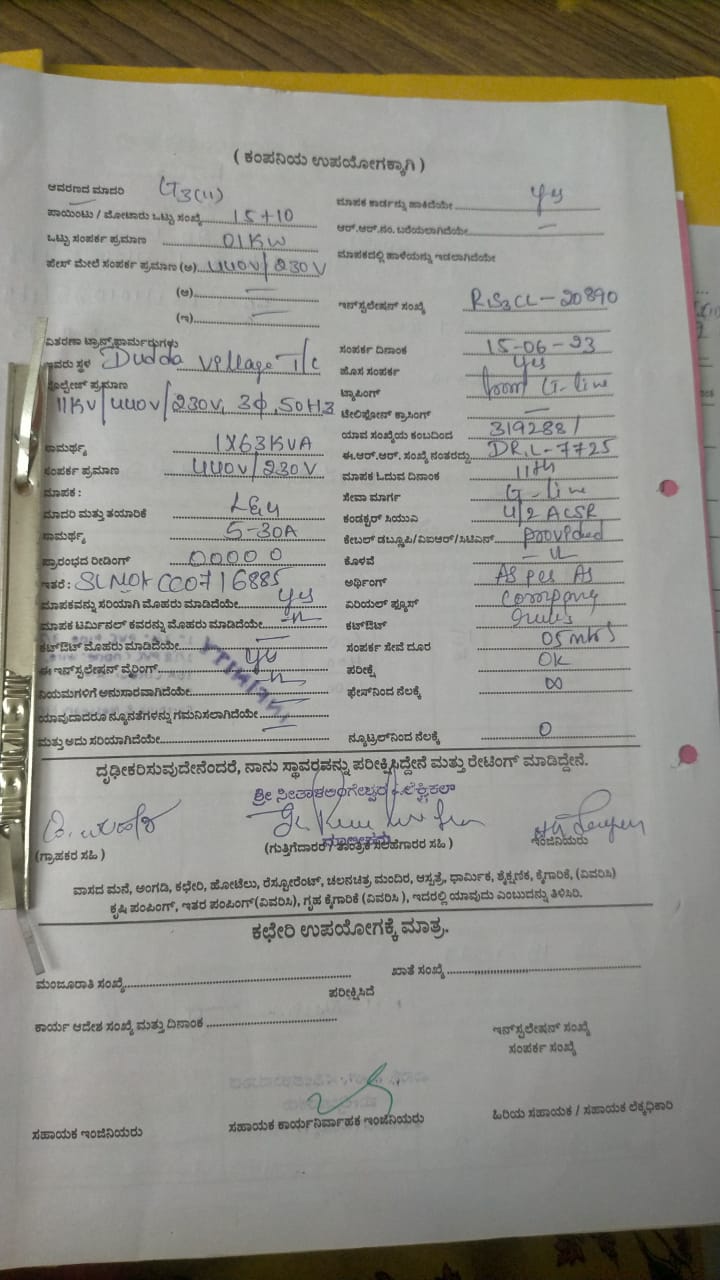 ( ಕಂಪನಿಯ ಉಪಯೋಗಕ್ಕಾಗಿ )
ಆವರಣದ ಮಾದರಿ
ಮಾಪಕ ಕಾರ್ಡನ್ನು ಹಾಕಿದೆಯೇ yes
ಪಾಯಿಂಟು / ಮೋಟಾರು ಒಟ್ಟು ಸಂಖ್ಯೆ 15+10
ಆರ್.ಆರ್.ನಂ. ಬರೆಯಲಾಗಿದೆಯೇ —
ಒಟ್ಟು ಸಂಪರ್ಕ ಪ್ರಮಾಣ 01KW
ಮಾಪಕದಲ್ಲಿ ಹಾಳೆಯನ್ನು ಇಡಲಾಗಿದೆಯೇ
ಫೇಸ್ ಮೇಲೆ ಸಂಪರ್ಕ ಪ್ರಮಾಣ (ಅ) 440V/230V
(ಆ) —
ಇನ್‌ಸ್ಟಲೇಷನ್ ಸಂಖ್ಯೆ - 20890
(ಇ) —
ವಿತರಣಾ ಟ್ರಾನ್ಸ್‌ಫಾರ್ಮರುಗಳು
ಸಂಪರ್ಕ ದಿನಾಂಕ 15-06-23
ಇವರು ಸ್ಥಳ Dudda village T/c
ಹೊಸ ಸಂಪರ್ಕ yes
ವೋಲ್ಟೇಜ್ ಪ್ರಮಾಣ
ಟ್ಯಾಪಿಂಗ್ from G-line
11KV/440V/230V, 3Φ, 50HZ
ಟೆಲಿಫೋನ್ ಕ್ರಾಸಿಂಗ್ —
ಯಾವ ಸಂಖ್ಯೆಯ ಕಂಬದಿಂದ 319288/
ಸಾಮರ್ಥ್ಯ 1X63KVA
ಈ.ಆರ್.ಆರ್. ಸಂಖ್ಯೆ ನಂತರದ್ದು DR.L-7725
ಸಂಪರ್ಕ ಪ್ರಮಾಣ 440V/230V
ಮಾಪಕ ಓದುವ ದಿನಾಂಕ 11th
ಮಾಪಕ :
ಸೇವಾ ಮಾರ್ಗ G-line
ಮಾದರಿ ಮತ್ತು ತಯಾರಿಕೆ L&G
ಕಂಡಕ್ಟರ್ ಸಿಯುವಿ 4/2 ACSR
ಸಾಮರ್ಥ್ಯ 5-30A
ಕೇಬಲ್ ಡಬ್ಲ್ಯೂಪಿ/ವಿಐಆರ್/ಸಿಟಿಎಸ್ provided
ಪ್ರಾರಂಭದ ರೀಡಿಂಗ್ 00000
ಕೊಳವೆ —"—
ಇತರೆ : SLNO# CC0716885
ಅರ್ಥಿಂಗ್ As per As
ಮಾಪಕವನ್ನು ಸರಿಯಾಗಿ ಮೊಹರು ಮಾಡಿದೆಯೇ yes
ಏರಿಯಲ್ ಫ್ಯೂಸ್ company
ಮಾಪಕ ಟರ್ಮಿನಲ್ ಕವರನ್ನು ಮೊಹರು ಮಾಡಿದೆಯೇ —"—
ಕಟ್‌ಔಟ್ rules
ಕಟ್‌ಔಟ್ ಮೊಹರು ಮಾಡಿದೆಯೇ —
ಸಂಪರ್ಕ ಸೇವೆ ದೂರ 05 mtrs
ಈ ಇನ್‌ಸ್ಟಲೇಷನ್ ವೈರಿಂಗ್ yes
ಪರೀಕ್ಷೆ OK
ನಿಯಮಗಳಿಗೆ ಅನುಸಾರವಾಗಿದೆಯೇ —"—
ಫೇಸ್‌ನಿಂದ ನೆಲಕ್ಕೆ ∞
ಯಾವುದಾದರೂ ನ್ಯೂನತೆಗಳನ್ನು ಗಮನಿಸಲಾಗಿದೆಯೇ —
ಮತ್ತು ಅದು ಸರಿಯಾಗಿದೆಯೇ —
ನ್ಯೂಟ್ರಲ್‌ನಿಂದ ನೆಲಕ್ಕೆ 0
ದೃಢೀಕರಿಸುವುದೇನೆಂದರೆ, ನಾನು ಸ್ಥಾವರವನ್ನು ಪರೀಕ್ಷಿಸಿದ್ದೇನೆ ಮತ್ತು ರೇಟಿಂಗ್ ಮಾಡಿದ್ದೇನೆ.
(ಗ್ರಾಹಕರ ಸಹಿ )
(ಗುತ್ತಿಗೆದಾರರ / ತಾಂತ್ರಿಕ ಸಲಹೆಗಾರರ ಸಹಿ )
ಇಂಜಿನಿಯರು
ವಾಸದ ಮನೆ, ಅಂಗಡಿ, ಕಛೇರಿ, ಹೋಟೆಲು, ರೆಸ್ಟೋರೆಂಟ್, ಚಲನಚಿತ್ರ ಮಂದಿರ, ಆಸ್ಪತ್ರೆ, ಧಾರ್ಮಿಕ, ಶೈಕ್ಷಣಿಕ, ಕೈಗಾರಿಕೆ, (ವಿವರಿಸಿ)
ಕೃಷಿ ಪಂಪಿಂಗ್, ಇತರ ಪಂಪಿಂಗ್(ವಿವರಿಸಿ), ಗೃಹ ಕೈಗಾರಿಕೆ (ವಿವರಿಸಿ ), ಇದರಲ್ಲಿ ಯಾವುದು ಎಂಬುದನ್ನು ತಿಳಿಸಿರಿ.
ಕಛೇರಿ ಉಪಯೋಗಕ್ಕೆ ಮಾತ್ರ.
ಮಂಜೂರಾತಿ ಸಂಖ್ಯೆ
ಖಾತೆ ಸಂಖ್ಯೆ
ಪರೀಕ್ಷಿಸಿದೆ
ಕಾರ್ಯ ಆದೇಶ ಸಂಖ್ಯೆ ಮತ್ತು ದಿನಾಂಕ
ಇನ್‌ಸ್ಟಲೇಷನ್ ಸಂಖ್ಯೆ
ಸಂಪರ್ಕ ಸಂಖ್ಯೆ
ಸಹಾಯಕ ಇಂಜಿನಿಯರು
ಸಹಾಯಕ ಕಾರ್ಯನಿರ್ವಾಹಕ ಇಂಜಿನಿಯರು
ಹಿರಿಯ ಸಹಾಯಕ / ಸಹಾಯಕ ಲೆಕ್ಕಧಿಕಾರಿ